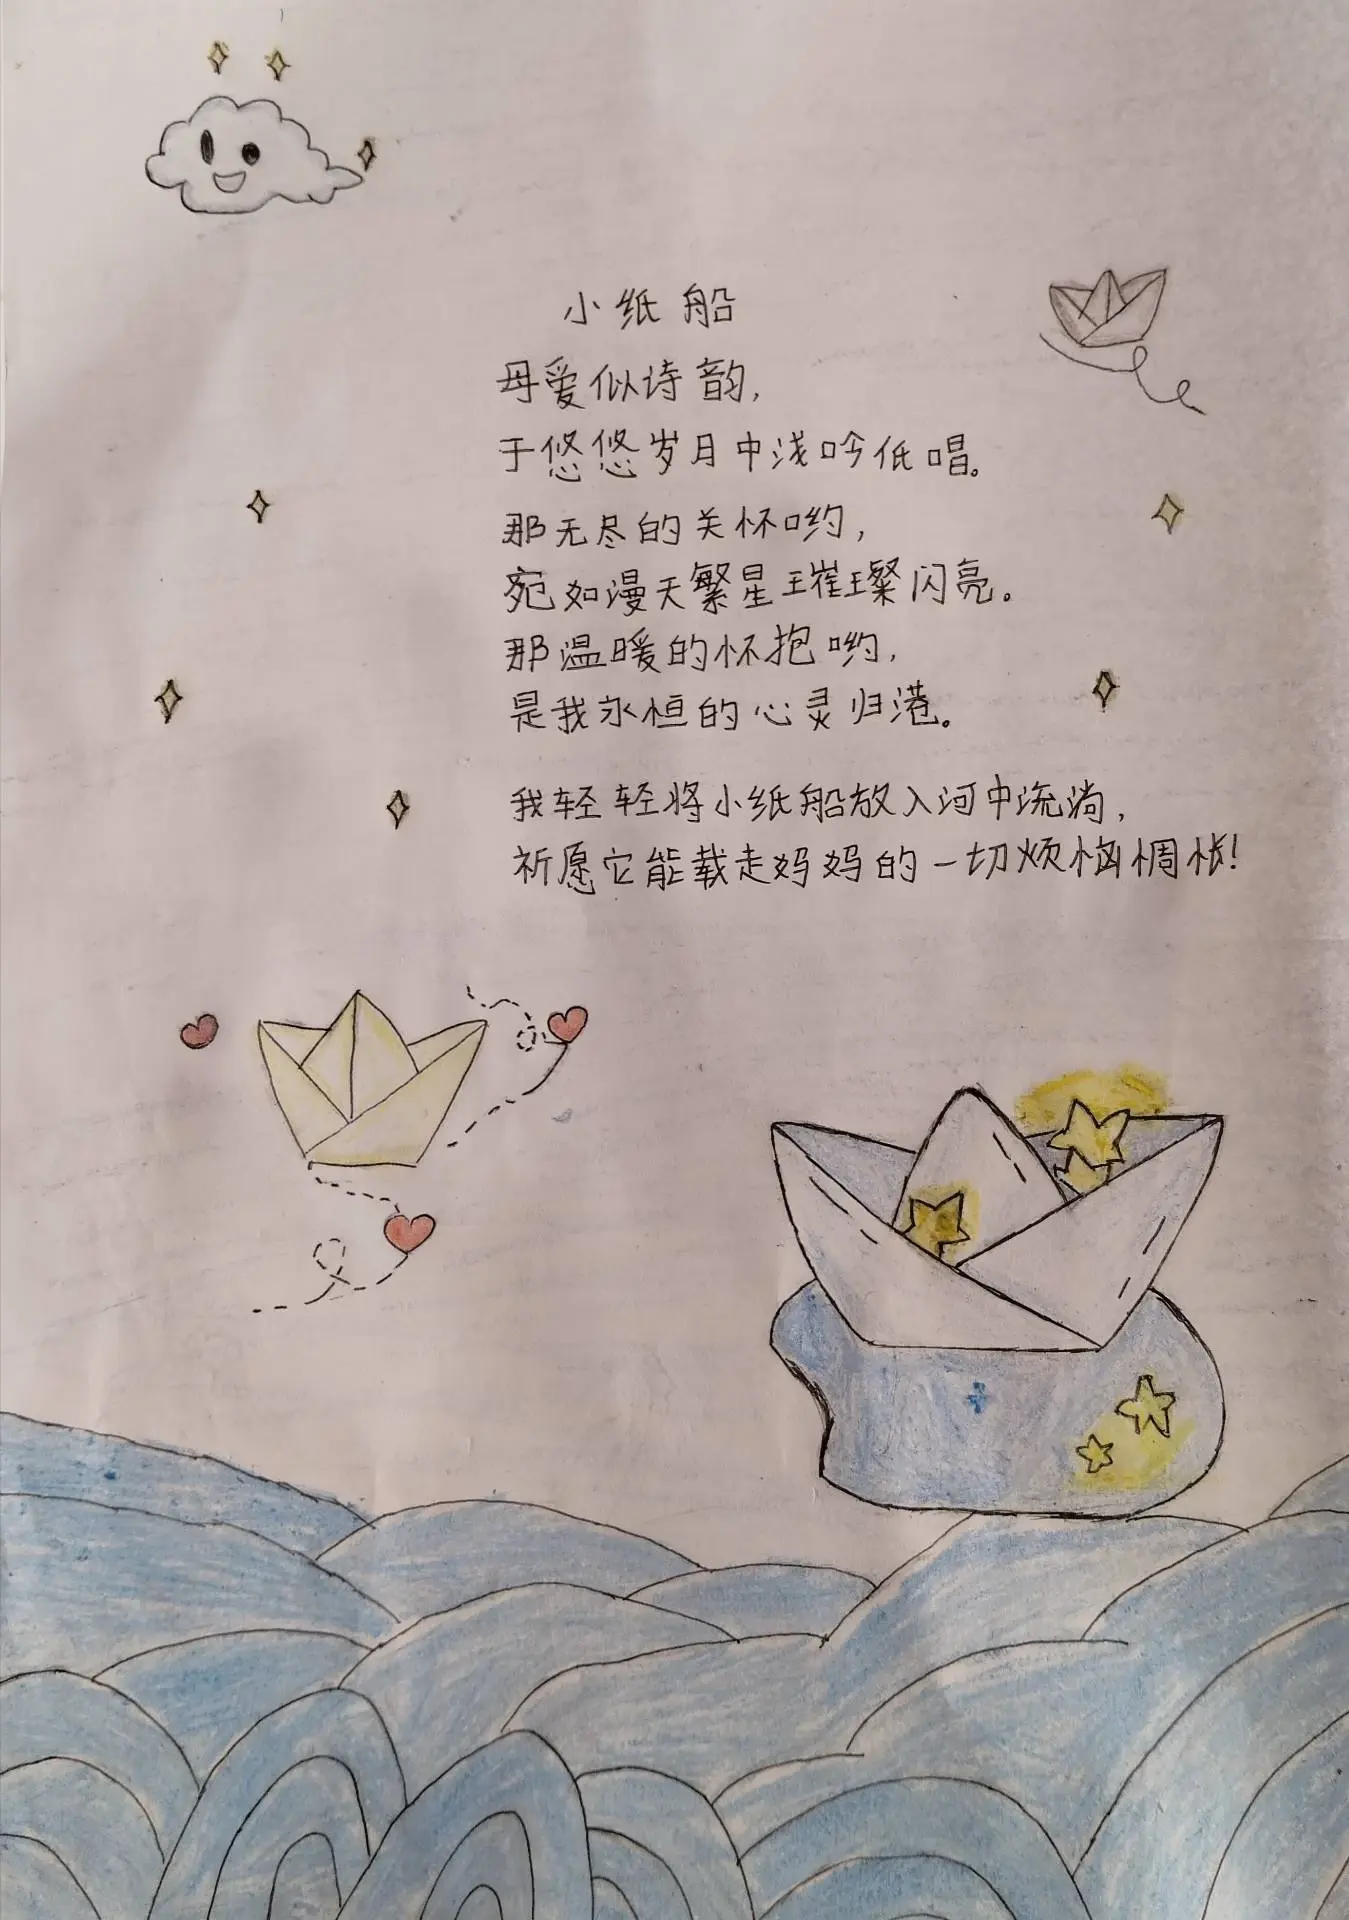 小纸船
母爱似诗韵,
于悠悠岁月中浅吟低唱。
那无尽的关怀哟,
宛如漫天繁星璀璨闪亮。
那温暖的怀抱哟,
是我永恒的心灵归港。
我轻轻将小纸船放入河中流淌,
祈愿它能载走妈妈的一切烦恼惆怅!